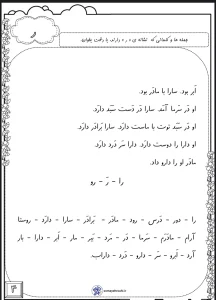 ر
جمله ها و کلماتی که نشانه ی « ر » دارند، با دقت بخوانید.
اَبر بود. سارا با مادَر بود.
او دَر سَرما آمَد. سارا دَر دَست سَبَد دارَد.
او دَر سَبَد توت با ماست دارَد. سارا بَرادَر دارَد.
او دارا را دوست دارَد. دارا سَر دَرد دارَد.
مادَر او را دارو داد.
را - رَ - رو
را - دور - دَرس - رود - مادَر - بَرادَر - سارا - دارَد - روستا
آرام - مادَرَم - سَرما - دَر - مَرد - تَبَر - مار - اَبر - دارا - بار
آرَد - اَبرو - سَر - دارو - دَرد - داراب